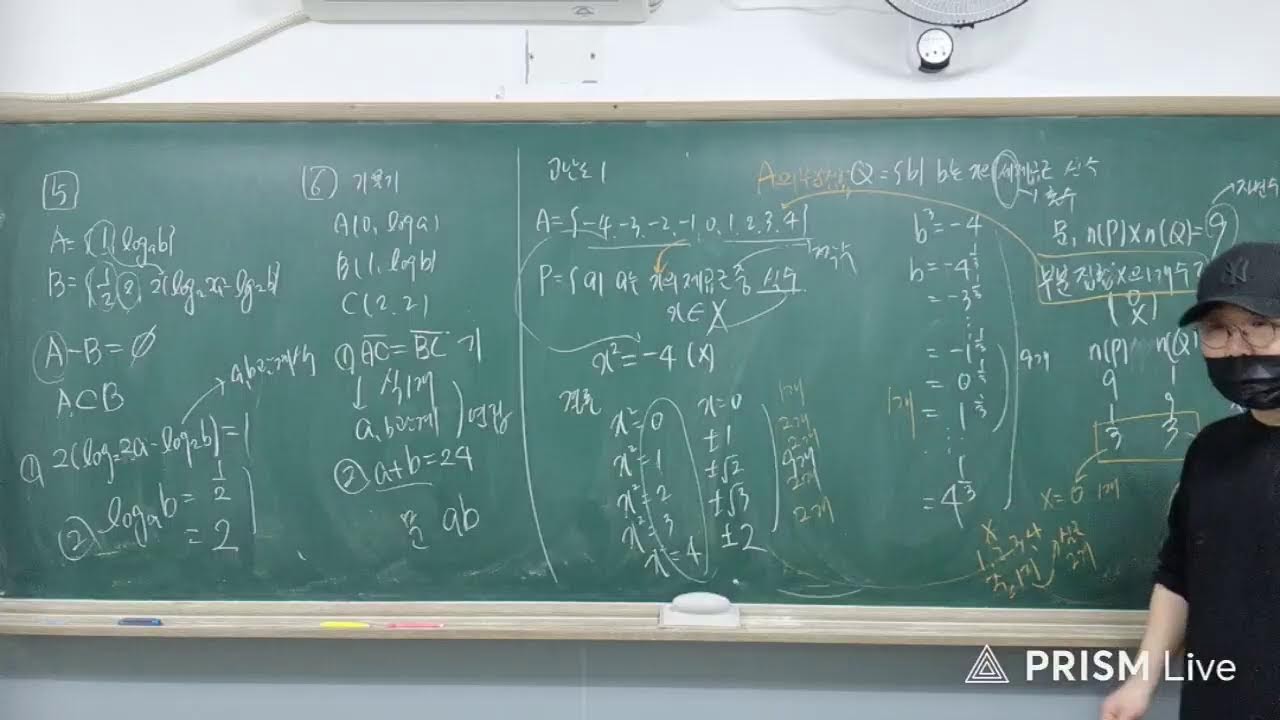 5
A={1, logab}
B={1/2, 2, 2(log₂2a-log₂b)}
A-B=∅
A⊂B
① 2(log₂2a-log₂b)=1
② logab=1/2
=2
6
A(0, loga)
B(1, logb)
C(2, 2)
① AC=BC
a,b관계
② a+b=24
ab
고난도1
A={-4,-3,-2,-1,0,1,2,3,4}
P={a| a는 x의 제곱근 중 실수
x∈X
x²=-4 (x)
결론
x²=0 x=0 1개
x²=1 ±1 2개
x²=2 ±√2 2개
x²=3 ±√3 2개
x²=4 ±2 2개
A의 부분집합
Q={b| b는 x의 세제곱근 실수
홀수
b³=-4
b=-4^1/3
=-3^1/3
⋮
=-1^1/3
=0^1/3
=1^1/3
⋮
=4^1/3
1개
9개
자연수
n(P)×n(Q)=9
부분집합 X의 개수?
(X)
n(P) n(Q)
9 1
1 9
3 3
X=0 1개
X
1,2,3,4
2개
PRISM Live